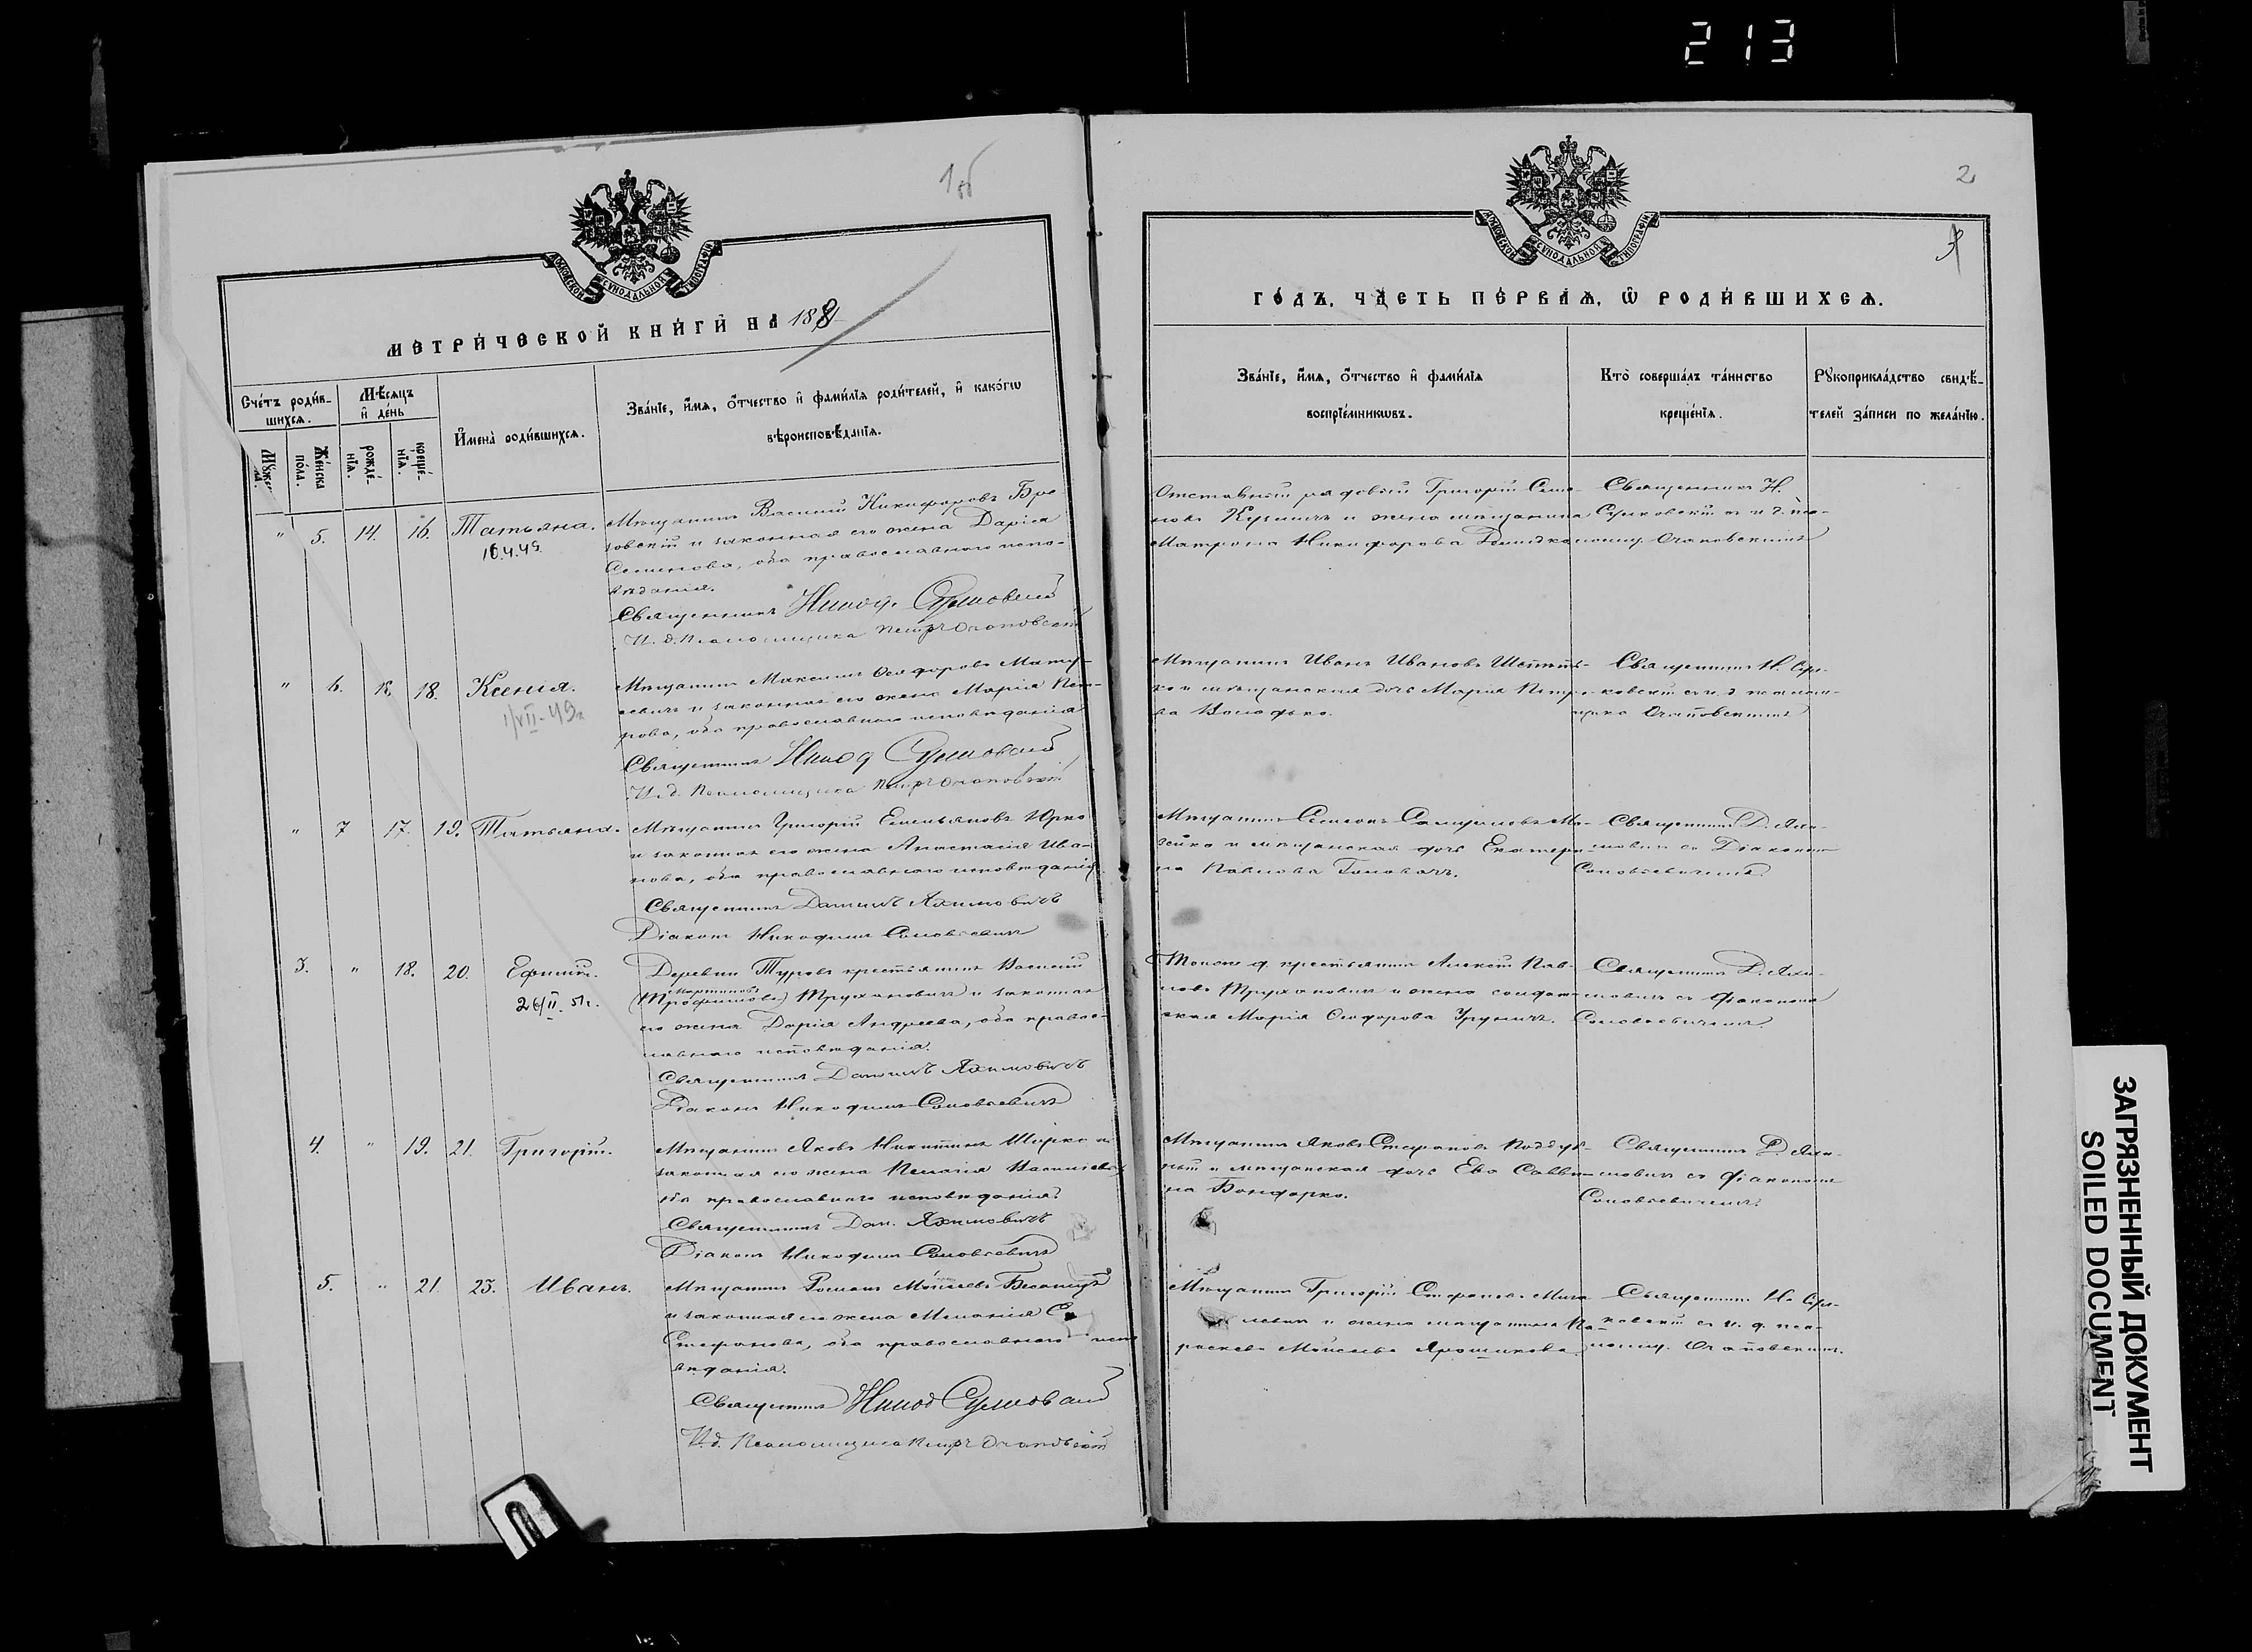 213
1об
МОСКОВСКОЙ СѴНОДАЛЬНОЙ ТИПОГРАФІИ
МЕТРИ́ЧЕСКОЙ КНИ́ГИ НА 188
Сче́тъ роди́в-
шихсѧ.
Мѣ́сѧцъ
и҆ де́нь
Мꙋ́жеска
по́ла.
Же́нска
по́ла.
рожде́-
нїѧ.
креще́-
нїѧ.
И҆мена̀ роди́вшихсѧ.
Зва́нїе, и҆́мѧ, о҆́тчество и҆ фами́лїѧ роди́телей, и҆ како́гѡ
вѣроисповѣ́данїѧ.
" 5. 14. 16. Татьяна.
16.4.49.
Мѣщанинъ Василій Никифоровъ Бре
зовскій и законная его жена Дарія
Семенова, оба православнаго испо-
вѣданія.
Священникъ
И. д. Псаломщика Петръ Очаповскій
" 6. 18. 18. Ксенія.
1/VII-49г.
Мѣщанинъ Максимъ Ѳеодоровъ
и законная его жена Марія Пет-
рова, оба православнаго исповѣданія
Священникъ
И. д. Псаломщика Петръ Очаповскій
" 7 17. 19. Татьяна.
Мѣщанинъ Григорій Емельяновъ Юрко
и законная его жена Анастасія Ива-
нова, оба православнаго исповѣданія.
Священникъ Даніилъ Яхимовичъ
Діаконъ Никодимъ Соловьевичъ
3. " 18. 20. Ефимъ.
26/II. 51г.
Деревни Туровъ крестьянинъ Василій
Мартиновъ
(Трофимовъ) Трухановичъ и законная
его жена Дарія Андреева, оба право-
славнаго исповѣданія.
Священникъ Даніилъ Яхимовичъ
Діаконъ Никодимъ Соловьевичъ
4. " 19. 21. Григорій.
Мѣщанинъ Яковъ Никитинъ Шорко и
законная его жена Пелагія Васильева,
оба православнаго исповѣданія.
Священникъ Дан. Яхимовичъ
Діаконъ Никодимъ Соловьевичъ
5. " 21. 23. Иванъ.
Мѣщанинъ Романъ Моисеевъ
и законная его жена Меланія
Стефанова, оба православнаго испо
вѣданія.
Священникъ
И. д. Псаломщика Петръ Очаповскій
2
МОСКОВСКОЙ СѴНОДАЛЬНОЙ ТИПОГРАФІИ
ГО́ДЪ, ЧА́СТЬ ПЕ́РВАѦ, Ѽ РОДИ́ВШИХСѦ.
Зва́нїе, и҆́мѧ, о҆́тчество и҆ фами́лїѧ
воспрїе́мникѡвъ.
Кто̀ соверша́лъ та́инство
креще́нїѧ.
Рꙋкоприкла́дство свидѣ́-
телей за́писи по жела́нїю.
Отставный рядовый Григорій Семе-
новъ Кузмичъ и жена мѣщанина
Матрона Никифорова
Священникъ Н.
съ и. д. пса-
ломщ. Очаповскимъ
Мѣщанинъ Иванъ Ивановъ
ко и мѣщанская дочь Марія Петро-
ва Володько.
Священникъ Н.
съ и. д. псалом-
щика Очаповскимъ
Мѣщанинъ Семеонъ Самуиловъ Мо-
сейко и мѣщанская дочь Екатери-
на Павлова Головачъ.
Священникъ Д. Яхи-
мовичъ съ Діакономъ
Соловьевичемъ.
Тойже д. крестьянинъ Алексѣй Пав-
ловъ Трухановичъ и жена солдат-
ская Марія Ѳеодорова
Священникъ Д. Яхи-
мовичъ съ діакономъ
Соловьевичемъ.
Мѣщанинъ Яковъ Стефановъ Поддуб-
ный и мѣщанская дочь Ева Савви-
на Бондарко.
Священникъ Д. Яхи-
мовичъ съ діакономъ
Соловьевичемъ.
Мѣщанинъ Григорій Стефановъ
и жена мѣщанина Па-
раскева Моисеева Ярошикова
Священникъ Н.
съ и. д. пса-
ломщ. Очаповскимъ.
ЗАГРЯЗНЕННЫЙ ДОКУМЕНТ
SOILED DOCUMENT